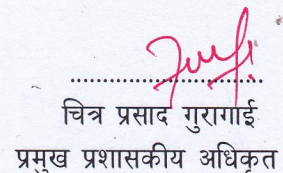 चित्र प्रसाद गुरागाई
प्रमुख प्रशासकीय अधिकृत